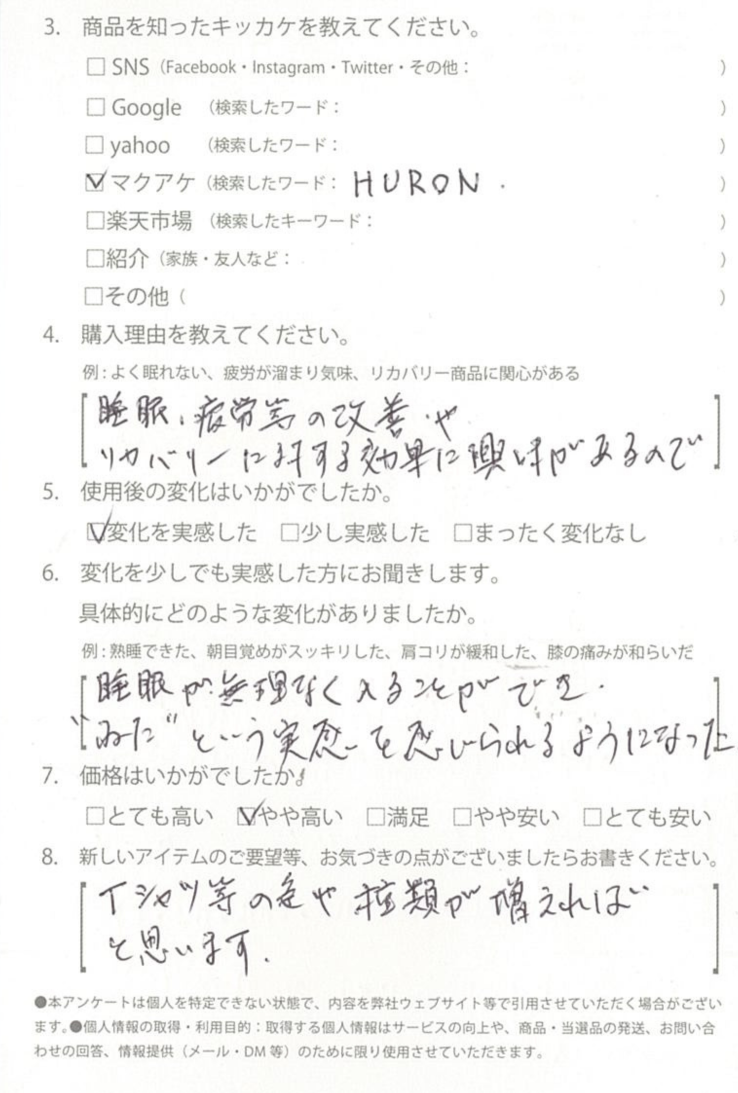 3. 商品を知ったキッカケを教えてください。
□ SNS（Facebook・Instagram・Twitter・その他：　）
□ Google （検索したワード：　）
□ yahoo （検索したワード：　）
☑ マクアケ（検索したワード： HURON . ）
□楽天市場 （検索したキーワード：　）
□紹介（家族・友人など：　）
□その他（　）
4. 購入理由を教えてください。
例：よく眠れない、疲労が溜まり気味、リカバリー商品に関心がある
睡眠、疲労等の改善や
リカバリーに対する効果に興味があるので
5. 使用後の変化はいかがでしたか。
☑変化を実感した □少し実感した □まったく変化なし
6. 変化を少しでも実感した方にお聞きします。
具体的にどのような変化がありましたか。
例：熟睡できた、朝目覚めがスッキリした、肩コリが緩和した、膝の痛みが和らいだ
睡眠が無理なく入ることができ.
“ねた”という実感を感じられるようになった
7. 価格はいかがでしたか。
□とても高い ☑やや高い □満足 □やや安い □とても安い
8. 新しいアイテムのご要望等、お気づきの点がございましたらお書きください。
Tシャツ等の色や種類が増えれば
と思います.
●本アンケートは個人を特定できない状態で、内容を弊社ウェブサイト等で引用させていただく場合がござい
ます。●個人情報の取得・利用目的：取得する個人情報はサービスの向上や、商品・当選品の発送、お問い合
わせの回答、情報提供（メール・DM 等）のために限り使用させていただきます。